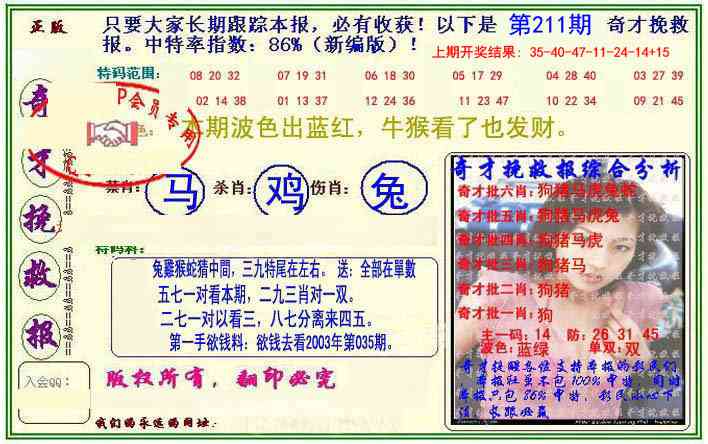 正版
只要大家长期跟踪本报，必有收获！以下是 第211期 奇才挽救
报。中特率指数：86%（新编版）！
上期开奖结果：35-40-47-11-24-14+15
特码范围：
08 20 32 07 19 31 06 18 30 05 17 29 04 28 40 03 27 39
02 14 38 01 13 37 12 24 36 11 23 47 10 22 34 09 21 45
P会员专用
色：本期波色出蓝红，牛猴看了也发财。
奇才挽救报
禁肖：马 杀肖：鸡 伤肖：兔
特码料：
兔雞猴蛇猜中間，三九特尾在左右。 送：全部在單數
五七一对看本期，二九三肖对一双。
二七一对以看三，八七分离来四五。
第一手欲钱料：欲钱去看2003年第035期。
奇才挽救报综合分析
奇才批六肖：狗猪马虎兔蛇
奇才批五肖：狗猪马虎兔
奇才批四肖：狗猪马虎
奇才批三肖：狗猪马
奇才批二肖：狗猪
奇才批一肖：狗
主一码：14 防：26 31 45
波色：蓝绿 单双：双
奇才提醒各位支持本报的彩民们
本报担虽不包100%中特，但时
本报只包86%中特，彩民小心下
注，长跟必赢
入会QQ：
版权所有，翻印必究
我们的永远的网址：